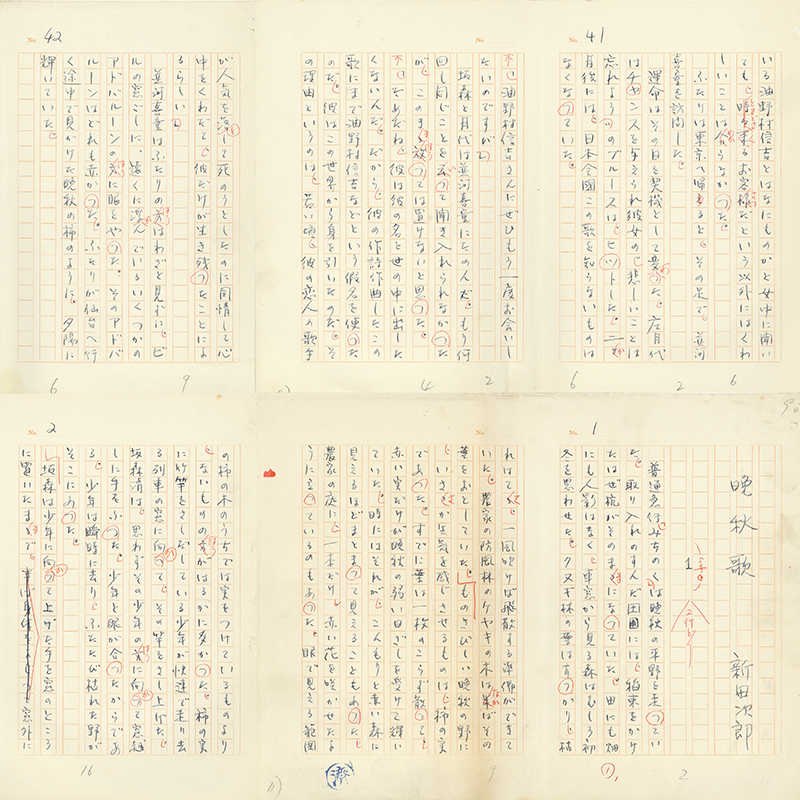 No. 41
いる油野村信吉とはなにものかと女中に聞い
ても、時々来るお客様だという以外にはくわ
しいことは分らなかった。
ふたりは東京へ帰ると、その足で、河
喜重を訪問した。
運命はその日を契機として変った。庄月代
はチャンスを与えられ彼女の「悲しいことは
忘れよう」のブルースはヒットした。二か
月後には、日本全国この歌を知らないものは
なくなっていた。
6 2 6
No.
「油野村信吉さんにぜひもう一度お会いし
たいのですが」
坂森と月代は河喜重にたのんだ。もう何
回も同じことを云って聞き入れられなかった
が、このまま放っては置けないと思った。
「だめだね、彼は彼の名を世の中に出した
くないんだ。だから、彼の作詩作曲したこの
歌にまで油野村信吉などという假名を使った
のだ。彼はこの世界から身を引いたのだ。そ
の理由というのは、若い頃、彼の恋人の歌手
4 2
No. 42
が人気を落して死のうとしたのに同情して心
中をくわだて、彼だけが生き残ったことによ
るらしい」
河喜重はふたりの方はわざと見ずに、ビ
ルの窓ごしに、遠くに浮んでいるいくつかの
アドバルーンの方に眼をやった。そのアドバ
ルーンはどれも赤かった。ふたりが仙台へ行
く途中で見かけた晩秋の柿のように、夕陽に
輝いていた。
6 9
No. 1
晩秋歌
新田次郎
1
普通急行みちのくは晩秋の平野を走ってい
た。取り入れのすんだ田圃には、稲束をかけ
たはぜ杭がそのままになっていた。田にも畑
にも人影はなく、車窓から見る森はむしろ初
冬を思わせた。クヌギ林の葉はすっかり、枯
① 2
No.
れはて、一風吹けば飛散する準備ができて
いた。農家の防風林のケヤキの木は半ばその
葉をおとしていた。ものさびしい晩秋の野に
いささか生気を感じさせるものは、柿の実
であった。すでに葉は一枚のこらず散って、
赤い実だけが晩秋の弱い日ざしを受けて輝い
ていた。時にはそれが、こんもりと赤い森に
見えるほどまとまって見えることもあった。
農家の庭に、一本だけ、赤い花を咲かせたよ
うに立っているのもあった。眼で見える範囲
9
済
No. 2
の柿の木のうちでは実をつけているものより
、ないものの方がはるかに多かった。柿の実
に竹竿をさしだしている少年が快速で走り去
る列車の窓に向って、その竿をさし上げた。
坂森清は、思わずその少年の方に向って窓越
しに手をふった。少年と眼が合ったからであ
る。少年は瞬時に去り、ふたたび枯れた野が
そこにあった。
坂森は少年に向って上げた手を窓のところ
に置いたままで、窓外に
16